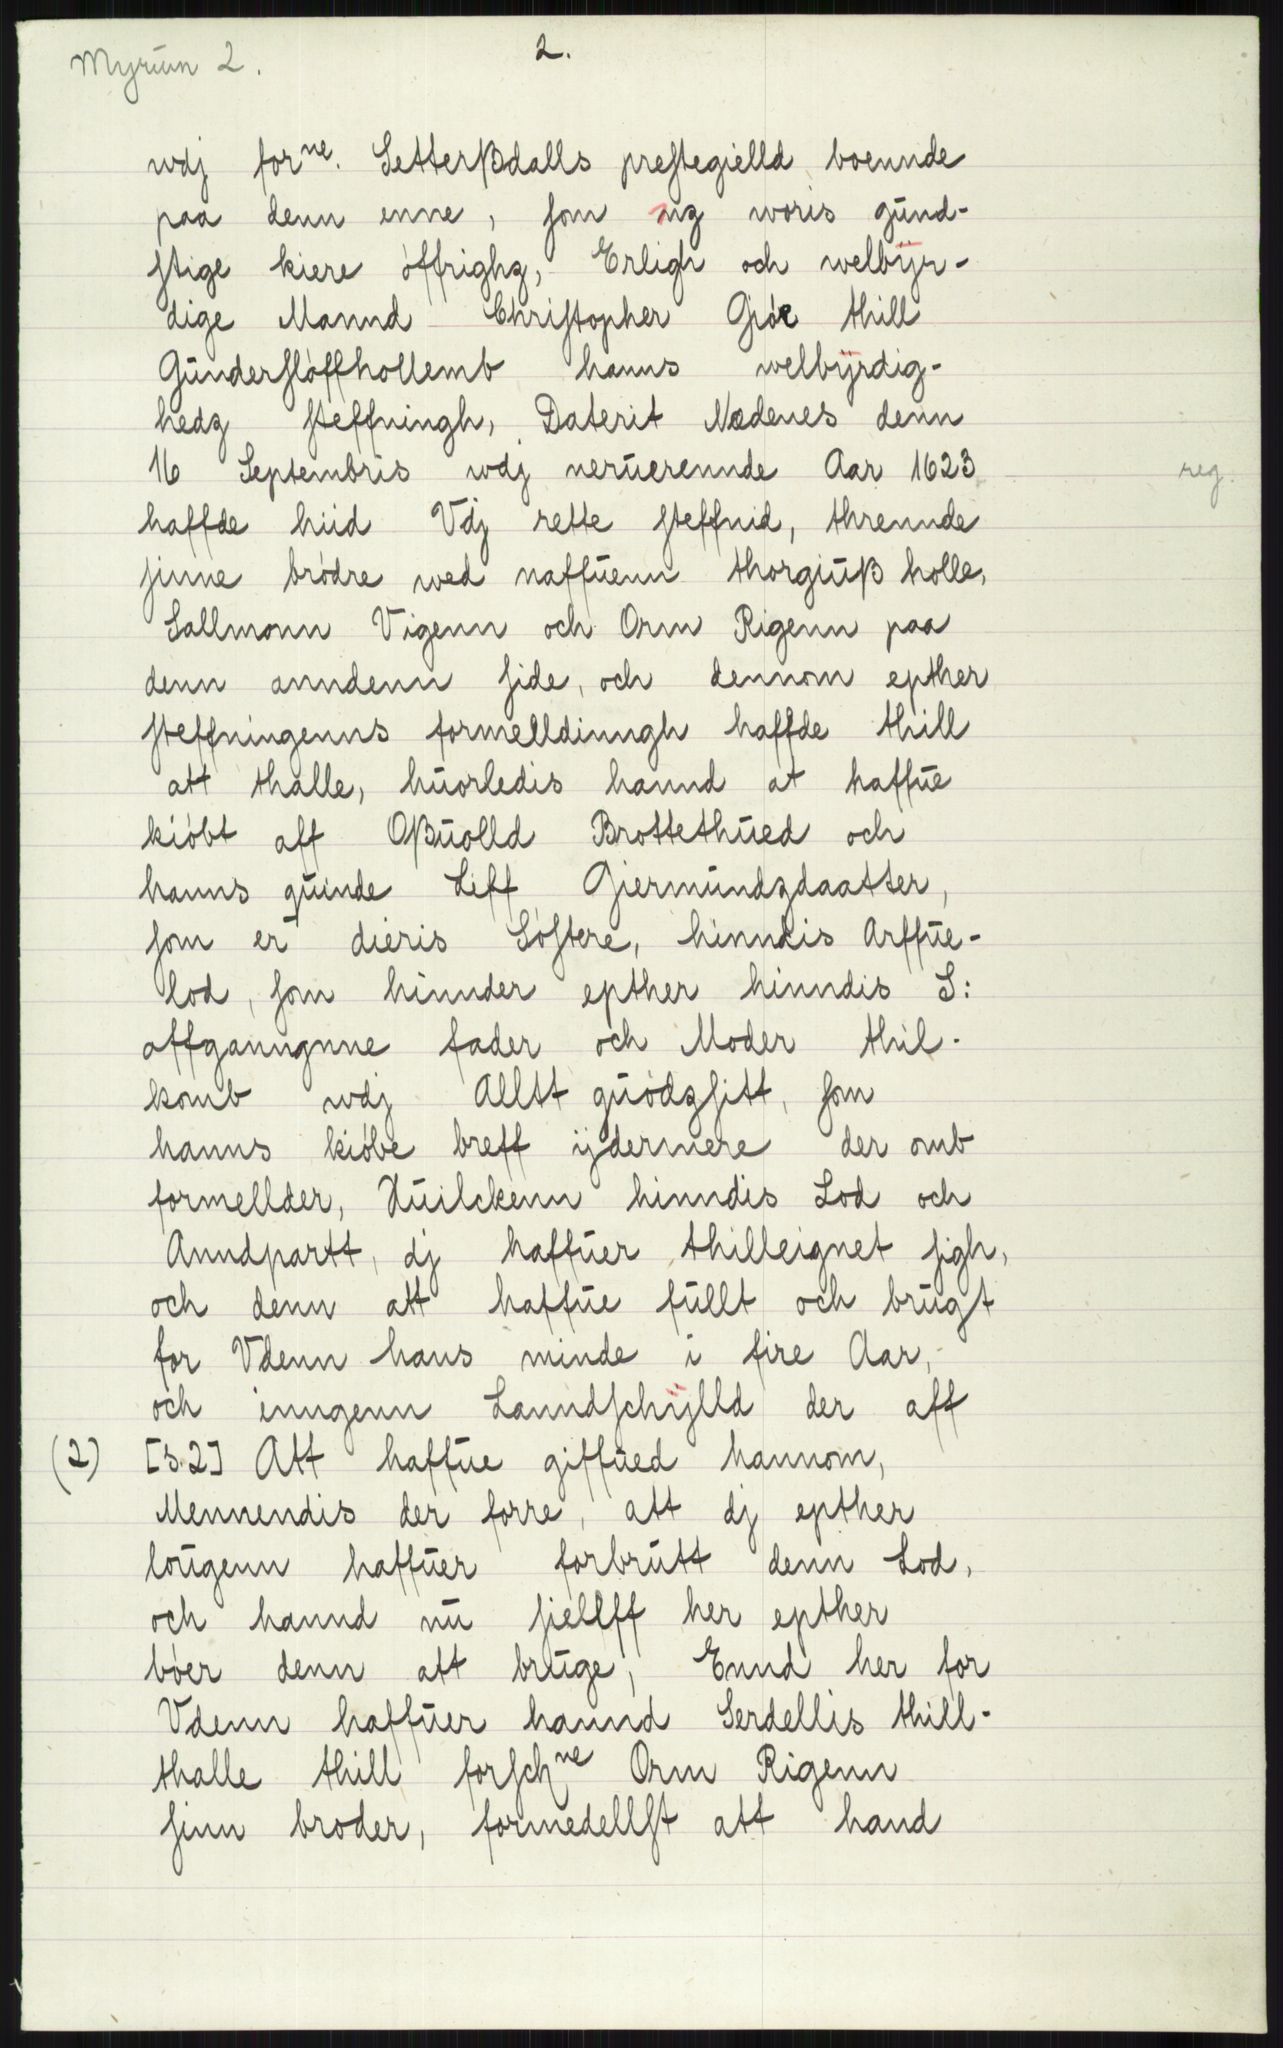 Myrum 2.
2.
wdj for ne. Setterßdalls prestegielld boennde
paa denn enne, som mz woris günd-
stige kiere öffrighz, Erligh och welbÿr-
dige Mannd Christopher Giöe thill
Günderslöffhollemb hanns welbÿrdig-
hedz steffningh, Daterit Nædenes denn
16 Septembris wdj nerüerennde Aar 1623
reg.
haffde hiid Vdj rette steffnid, thrennde
sinne brödre wed naffüenn thorgiüß holle,
Sallmonn Vigenn och Orm Rigenn paa
denn anndenn side, och dennom epther
steffningenns formelldinngh haffde thill
att thalle, hüorledis hannd at haffüe
kiöbt aff Oßüolld Brottethüed och
hanns qüinde Liff Giermündzdaatter,
som er dieris Söstere, hinndis Arffüe-
lod, som hinnder epther hinndis S:
affganngnne fader och Moder thil-
komb wdj Alltt güodzsitt, som
hanns kiöbe breff ijdermere der omb
formellder, Hüilckenn hinndis Lod och
Anndpartt, dj haffüer thilleignet sigh,
och denn att haffüe füllt och brügt
for Vdenn hans minde i fire Aar,
och inngenn Lanndschÿlld der aff
(2) [s 2] Att haffüe giffüed hannom,
Mennendis der forre, att dj epther
loügenn haffüer forbrütt denn Lod,
och hannd nü siellff her epther
böer denn att brüge, Ennd her for
Vdenn haffüer hannd Serdellis thill-
thalle thill forsch ne Orm Rigenn
sinn broder, formedellst att hand